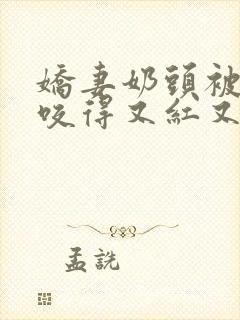 嬌妻奶頭被
咬得又紅又
孟詵